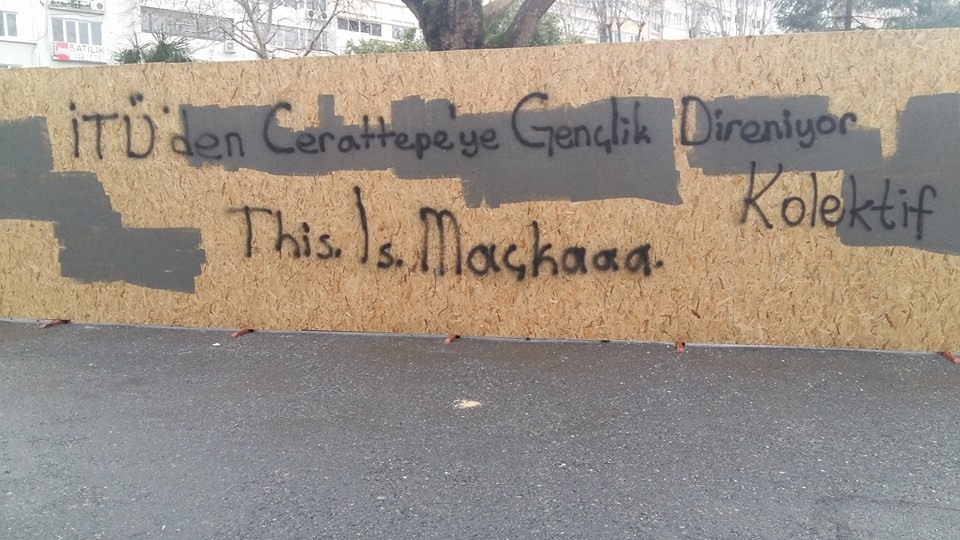 İTÜ'den Cerattepe'ye Gençlik Direniyor
Kolektif
This. Is. Maçkaaa.
SATILIK